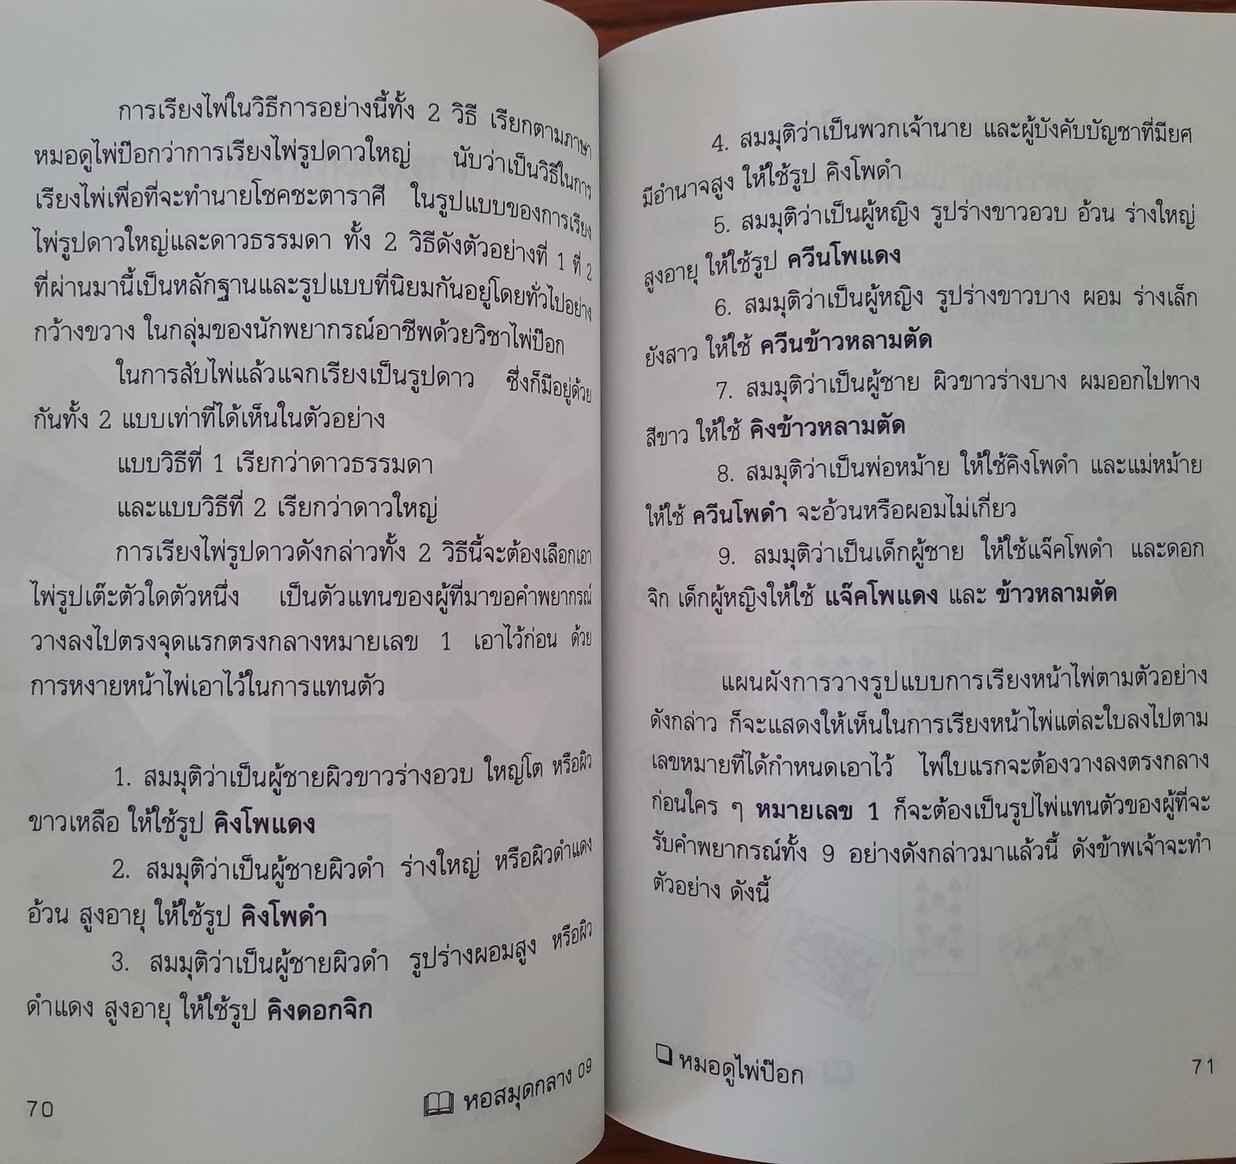 การเรียงไพ่ในวิธีการอย่างนี้ทั้ง 2 วิธี เรียกตามภาษา
หมอดูไพ่ป๊อกว่าการเรียงไพ่รูปดาวใหญ่ นับว่าเป็นวิธีในการ
เรียงไพ่เพื่อที่จะทำนายโชคชะตาราศี ในรูปแบบของการเรียง
ไพ่รูปดาวใหญ่และดาวธรรมดา ทั้ง 2 วิธีดังตัวอย่างที่ 1 ที่ 2
ที่ผ่านมานี้เป็นหลักฐานและรูปแบบที่นิยมกันอยู่โดยทั่วไปอย่าง
กว้างขวาง ในกลุ่มของนักพยากรณ์อาชีพด้วยวิชาไพ่ป๊อก
ในการสับไพ่แล้วแจกเรียงเป็นรูปดาว ซึ่งก็มีอยู่ด้วย
กันทั้ง 2 แบบเท่าที่ได้เห็นในตัวอย่าง
แบบวิธีที่ 1 เรียกว่าดาวธรรมดา
และแบบวิธีที่ 2 เรียกว่าดาวใหญ่
การเรียงไพ่รูปดาวดังกล่าวทั้ง 2 วิธีนี้จะต้องเลือกเอา
ไพ่รูปเต๊ะตัวใดตัวหนึ่ง เป็นตัวแทนของผู้ที่มาขอคำพยากรณ์
วางลงไปตรงจุดแรกตรงกลางหมายเลข 1 เอาไว้ก่อน ด้วย
การหงายหน้าไพ่เอาไว้ในการแทนตัว
1. สมมุติว่าเป็นผู้ชายผิวขาวร่างอวบ ใหญ่โต หรือผิว
ขาวเหลือ ให้ใช้รูป คิงโพแดง
2. สมมุติว่าเป็นผู้ชายผิวดำ ร่างใหญ่ หรือผิวดำแดง
อ้วน สูงอายุ ให้ใช้รูป คิงโพดำ
3. สมมุติว่าเป็นผู้ชายผิวดำ รูปร่างผอมสูง หรือผิว
ดำแดง สูงอายุ ให้ใช้รูป คิงดอกจิก
70 หอสมุดกลาง 09
4. สมมุติว่าเป็นพวกเจ้านาย และผู้บังคับบัญชาที่มียศ
มีอำนาจสูง ให้ใช้รูป คิงโพดำ
5. สมมุติว่าเป็นผู้หญิง รูปร่างขาวอวบ อ้วน ร่างใหญ่
สูงอายุ ให้ใช้รูป ควีนโพแดง
6. สมมุติว่าเป็นผู้หญิง รูปร่างขาวบาง ผอม ร่างเล็ก
ยังสาว ให้ใช้ ควีนข้าวหลามตัด
7. สมมุติว่าเป็นผู้ชาย ผิวขาวร่างบาง ผมออกไปทาง
สีขาว ให้ใช้ คิงข้าวหลามตัด
8. สมมุติว่าเป็นพ่อหม้าย ให้ใช้คิงโพดำ และแม่หม้าย
ให้ใช้ ควีนโพดำ จะอ้วนหรือผอมไม่เกี่ยว
9. สมมุติว่าเป็นเด็กผู้ชาย ให้ใช้แจ๊คโพดำ และดอก
จิก เด็กผู้หญิงให้ใช้ แจ๊คโพแดง และ ข้าวหลามตัด
แผนผังการวางรูปแบบการเรียงหน้าไพ่ตามตัวอย่าง
ดังกล่าว ก็จะแสดงให้เห็นในการเรียงหน้าไพ่แต่ละใบลงไปตาม
เลขหมายที่ได้กำหนดเอาไว้ ไพ่ใบแรกจะต้องวางลงตรงกลาง
ก่อนใคร ๆ หมายเลข 1 ก็จะต้องเป็นรูปไพ่แทนตัวของผู้ที่จะ
รับคำพยากรณ์ทั้ง 9 อย่างดังกล่าวมาแล้วนี้ ดังข้าพเจ้าจะทำ
ตัวอย่าง ดังนี้
หมอดูไพ่ป๊อก 71